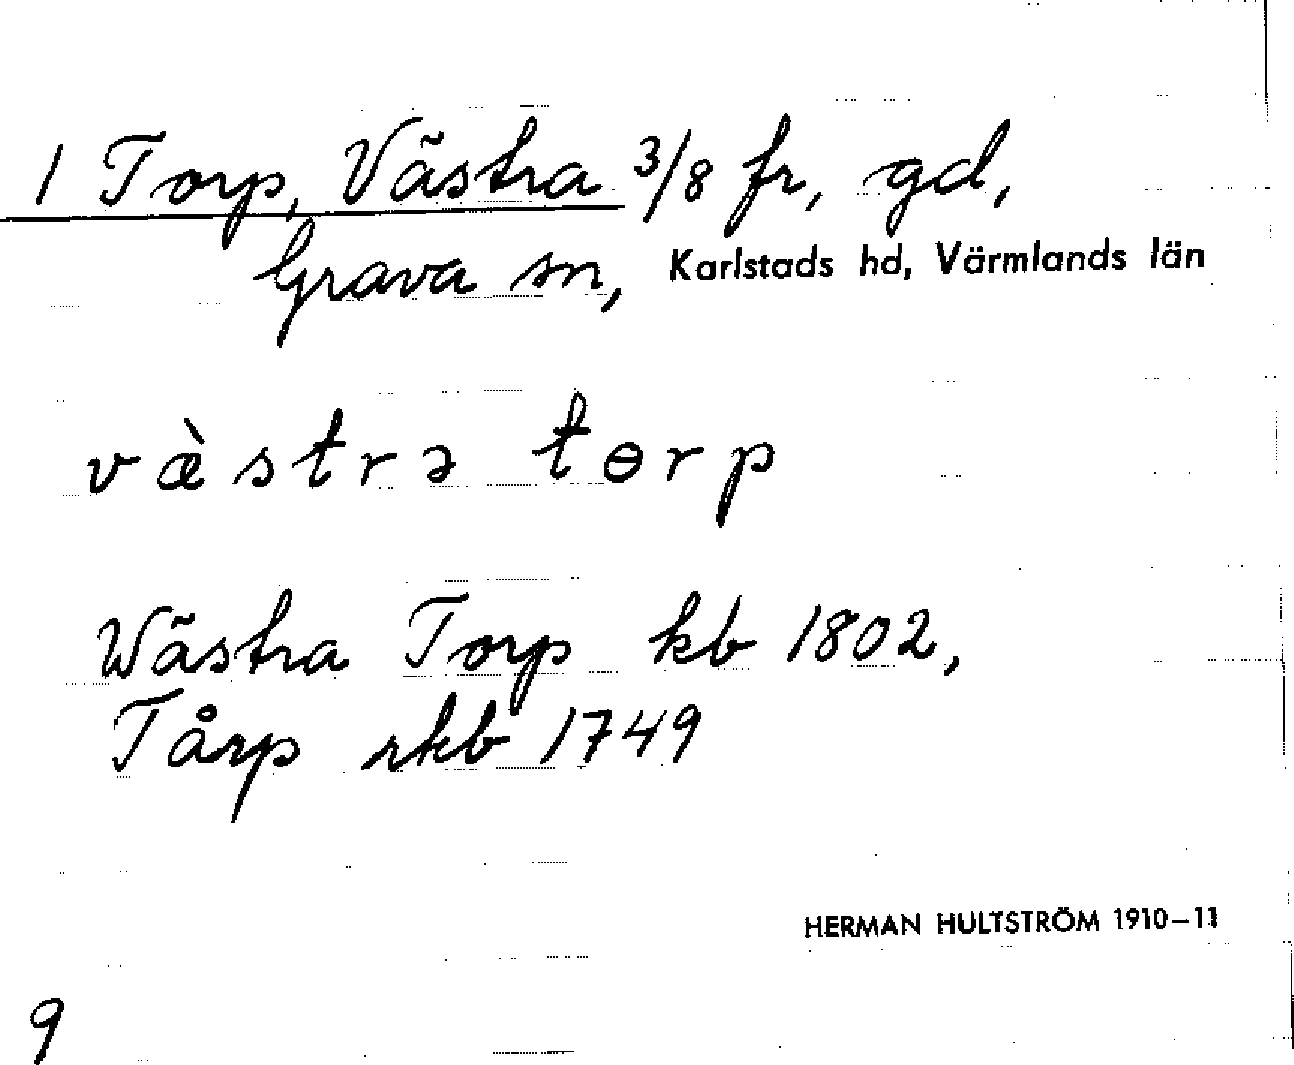 1 Torp, Västra 3/8 fr, gd,
Grava sn, Karlstads hd, Värmlands län
væ̀strə tɵrp
Wästra Torp kb 1802,
Tårp rkb 1749
HERMAN HULTSTRÖM 1910–11
9